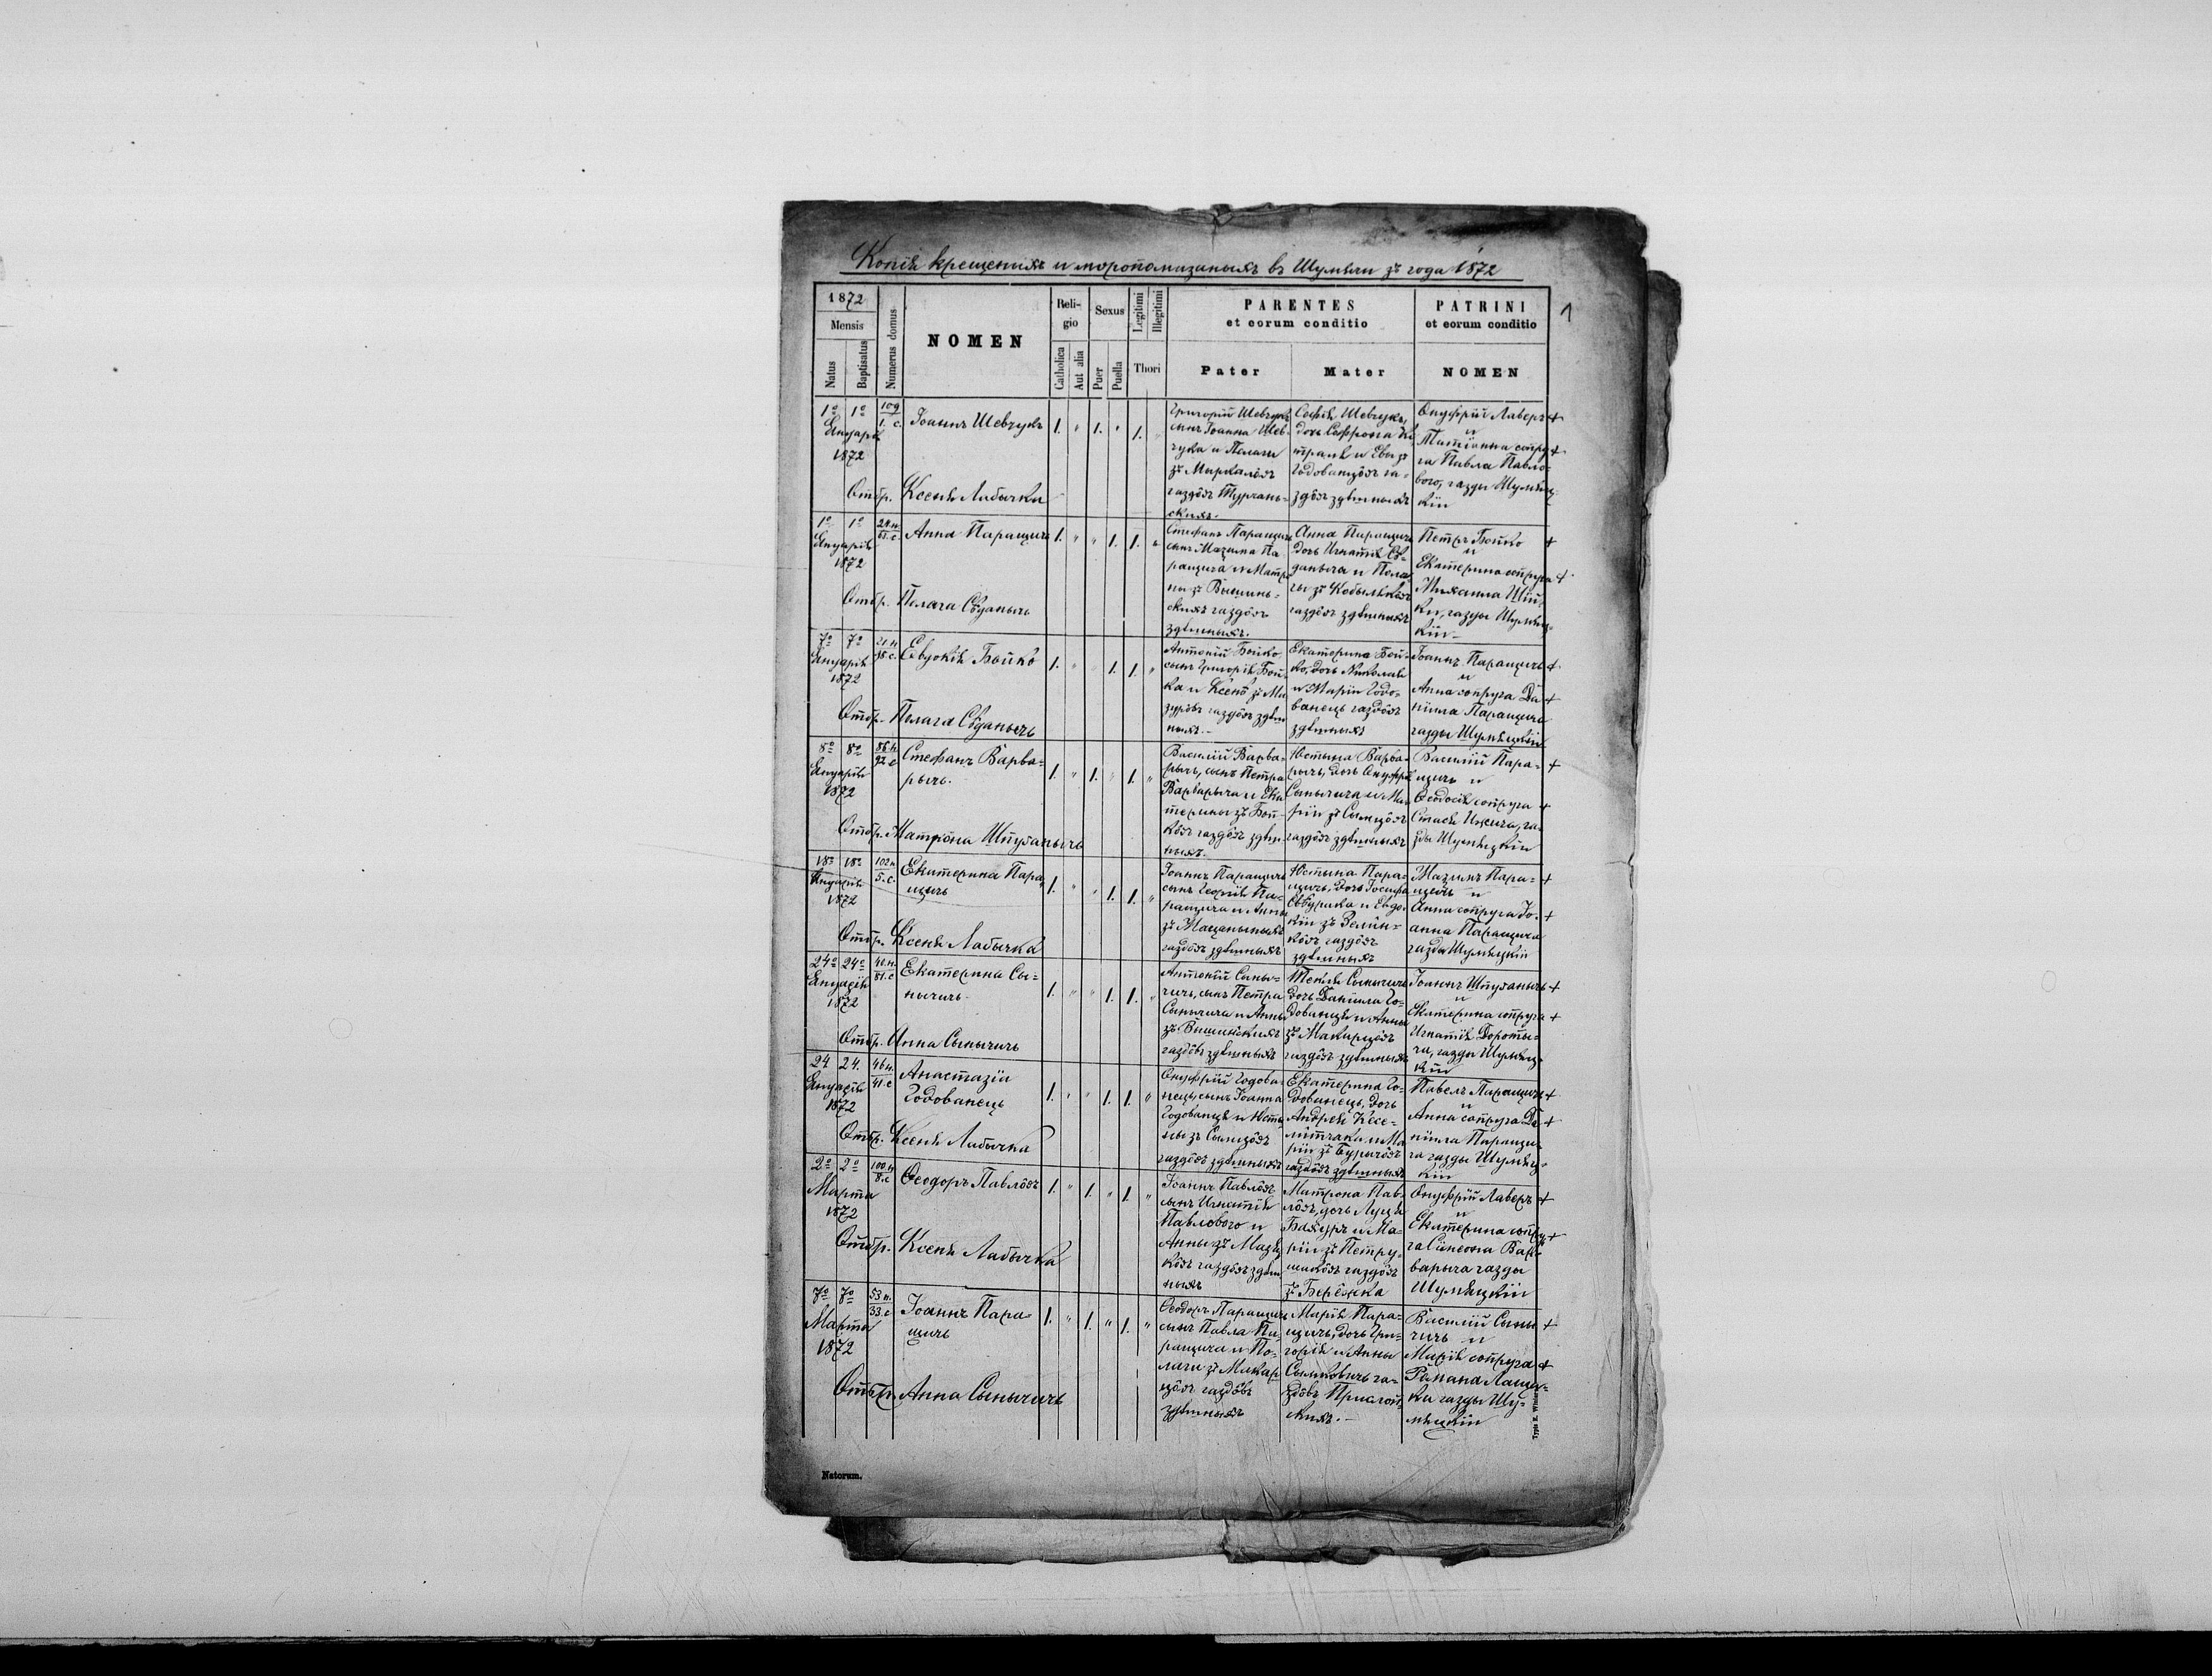 Копія крещеных и моропомазаных въ Шумячи зъ года 1872
1
1872
Mensis
Natus
Baptisatus
Numerus domus
NOMEN
Religio
Catholica
Aut alia
Sexus
Puer
Puella
Legitimi
Illegitimi
Thori
PARENTES
et eorum conditio
Pater
Mater
PATRINI
et eorum conditio
NOMEN
1º 1º
109
1. с.
Януарія
1872
Іоаннъ Шевчукъ
Отбр. Ксенія Лабычка
1. " 1. " 1. "
Григорій Шевчукъ
сынъ Іоанна Шев-
чука и Пелаги
газдôвъ Турчань-
скихъ.
Софія Шевчукъ,
дочь Софрона
Годованцôвъ га-
здôвъ здѣшныхъ
Онуфрій Лаверъ +
и
Татіанна супру +
га Павла Павло-
вого, газды Шумяц-
кіи
1º 1º
24 н.
61. с.
Януарія
1872
Анна Паращичъ
Отбр. Пелага Сôданычъ
1. " " 1. 1. "
Стефанъ Паращичъ
сынъ Мазима Па-
ращича и Матро
ны зъ Вышинь-
скихъ газдôвъ
здѣшныхъ.
Анна Паращичъ
дочь Игнатія Сô-
даныча и Пела
ги зъ Кобылякôвъ
газдôвъ здѣшныхъ
Петръ Бойко +
и
Екатерина супруга +
Михаила
ки, газды Шумяц-
кіи
7º 7º
21 н
95. с.
Януарія
1872
Евдокія Бойко
Отбр. Пелага Сôданычъ
1. " 1. 1. "
Антоній Бойко
сынъ Григорія Бой
ка и Ксенѣ зъ Ма
зурôвъ газдôвъ здѣш
ныхъ.
Екатерина Бой-
ко, дочь Николая
и Маріи Годо-
ванець газдôвъ
здѣшныхъ
Іоаннъ Паращичъ +
и
Анна супруга Да +
ніила Паращича
газды Шумяцкіи
8º 8º
86 н
92 с
Януарія
1872
Стефанъ Варва-
рычъ.
Отбр. Матрона Шпуганычъ
1. " 1. " 1. "
Василій Варва-
рычъ, сынъ Петра
Варварыча и Ека
терины зъ Бой-
кôвъ газдôвъ здѣш-
ныхъ.
Юстына Варва-
рычъ, дочь Онуфрі
Сынычича и Ма-
ріи зъ Сымцôвъ
газдôвъ здѣшныхъ
Василій Пара- +
щичъ и
Ѳеодосія супруга +
Стася га-
зды Шумяцкіи
18º 18º
102 н
5. с.
Януарія
1872
Екатерина Пара
щичъ
Отбр. Ксенія Лабычка
1. " " 1. 1. "
Іоаннъ Паращичъ
сынъ Георгія Па-
ращича и Анны
газдôвъ здѣшныхъ
Юстына Пара-
щичъ, дочь Іосифа
и Евдо-
кіи зъ Зелин-
кôвъ газдôвъ
здѣшныхъ
Мазимъ Пара- +
щичъ и
Анна супруга Іо- +
анна Паращича
газды Шумяцкіи
24º 24º
40. н.
81. с
Януарія
1872
Екатерина Сы-
нычичъ.
Отбр. Анна Сынычичъ
1. " " 1. 1. "
Антоній Сыны-
чичъ, сынъ Петра
Сынычича и Анны
зъ Вишинскихъ
газдôвъ здѣшныхъ
Текля Сынычичъ
дочь Даніила Го-
дованця и Анны
зъ Макарцôвъ
газдôвъ здѣшныхъ
Іоаннъ Шпуганычъ +
и
Екатерина супруга +
Игнатія Дороты-
ча, газды Шумяц-
кіи
24 24.
46 н.
41. с
Януарія
1872
Анастазіа
Годованець
Отбр. Ксенія Лабычка
1. " " 1. 1. "
Онуфрій Годова-
нець, сынъ Іоанна
Годованця и Юсты
ны зъ Сымцôвъ
газдôвъ здѣшныхъ
Екатерина Го-
дованець, дочь
Андрея Кесе-
и Ма
ріи зъ
газдôвъ здѣшныхъ
Павелъ Паращичъ +
и
Анна супруга Да +
ніила Паращи-
ча газды Шумяц-
кіи
2º 2º
100 н
8. с
Марта
1872
Ѳеодоръ Павлôвъ
Отбр. Ксенія Лабычка
1. " 1. " 1. "
Іоаннъ Павлôвъ
сынъ Игнатія
Павлового и
Анны зъ Мазя-
кôвъ газдôвъ здѣш
ныхъ
Матрона Пав-
лôвъ, дочь Луця
и Ма-
ріи зъ Петру-
шакôвъ газдôвъ
зъ Берёжка
Онуфрій Лаверъ +
и
Екатерина супру +
га Симеона Вар-
варыча газды
Шумяцкіи
7º 7º
53 н.
33. с
Марта
1872
Іоаннъ Пара-
щичъ
Отбр. Анна Сынычичъ
1. " 1. " 1. "
Ѳеодоръ Паращичъ
сынъ Павла Па-
ращича и По-
лаги зъ Макар
цôвъ газдôвъ
здѣшныхъ
Марія Пара-
щичъ, дочь Гри-
горія и Анны
Сынковичъ га-
здôвъ Прислôп-
скихъ.
Василій Сыны +
чичъ и
Марія супруга +
Романа Лащу-
ка газды Шу-
мяцкіи
Natorum.